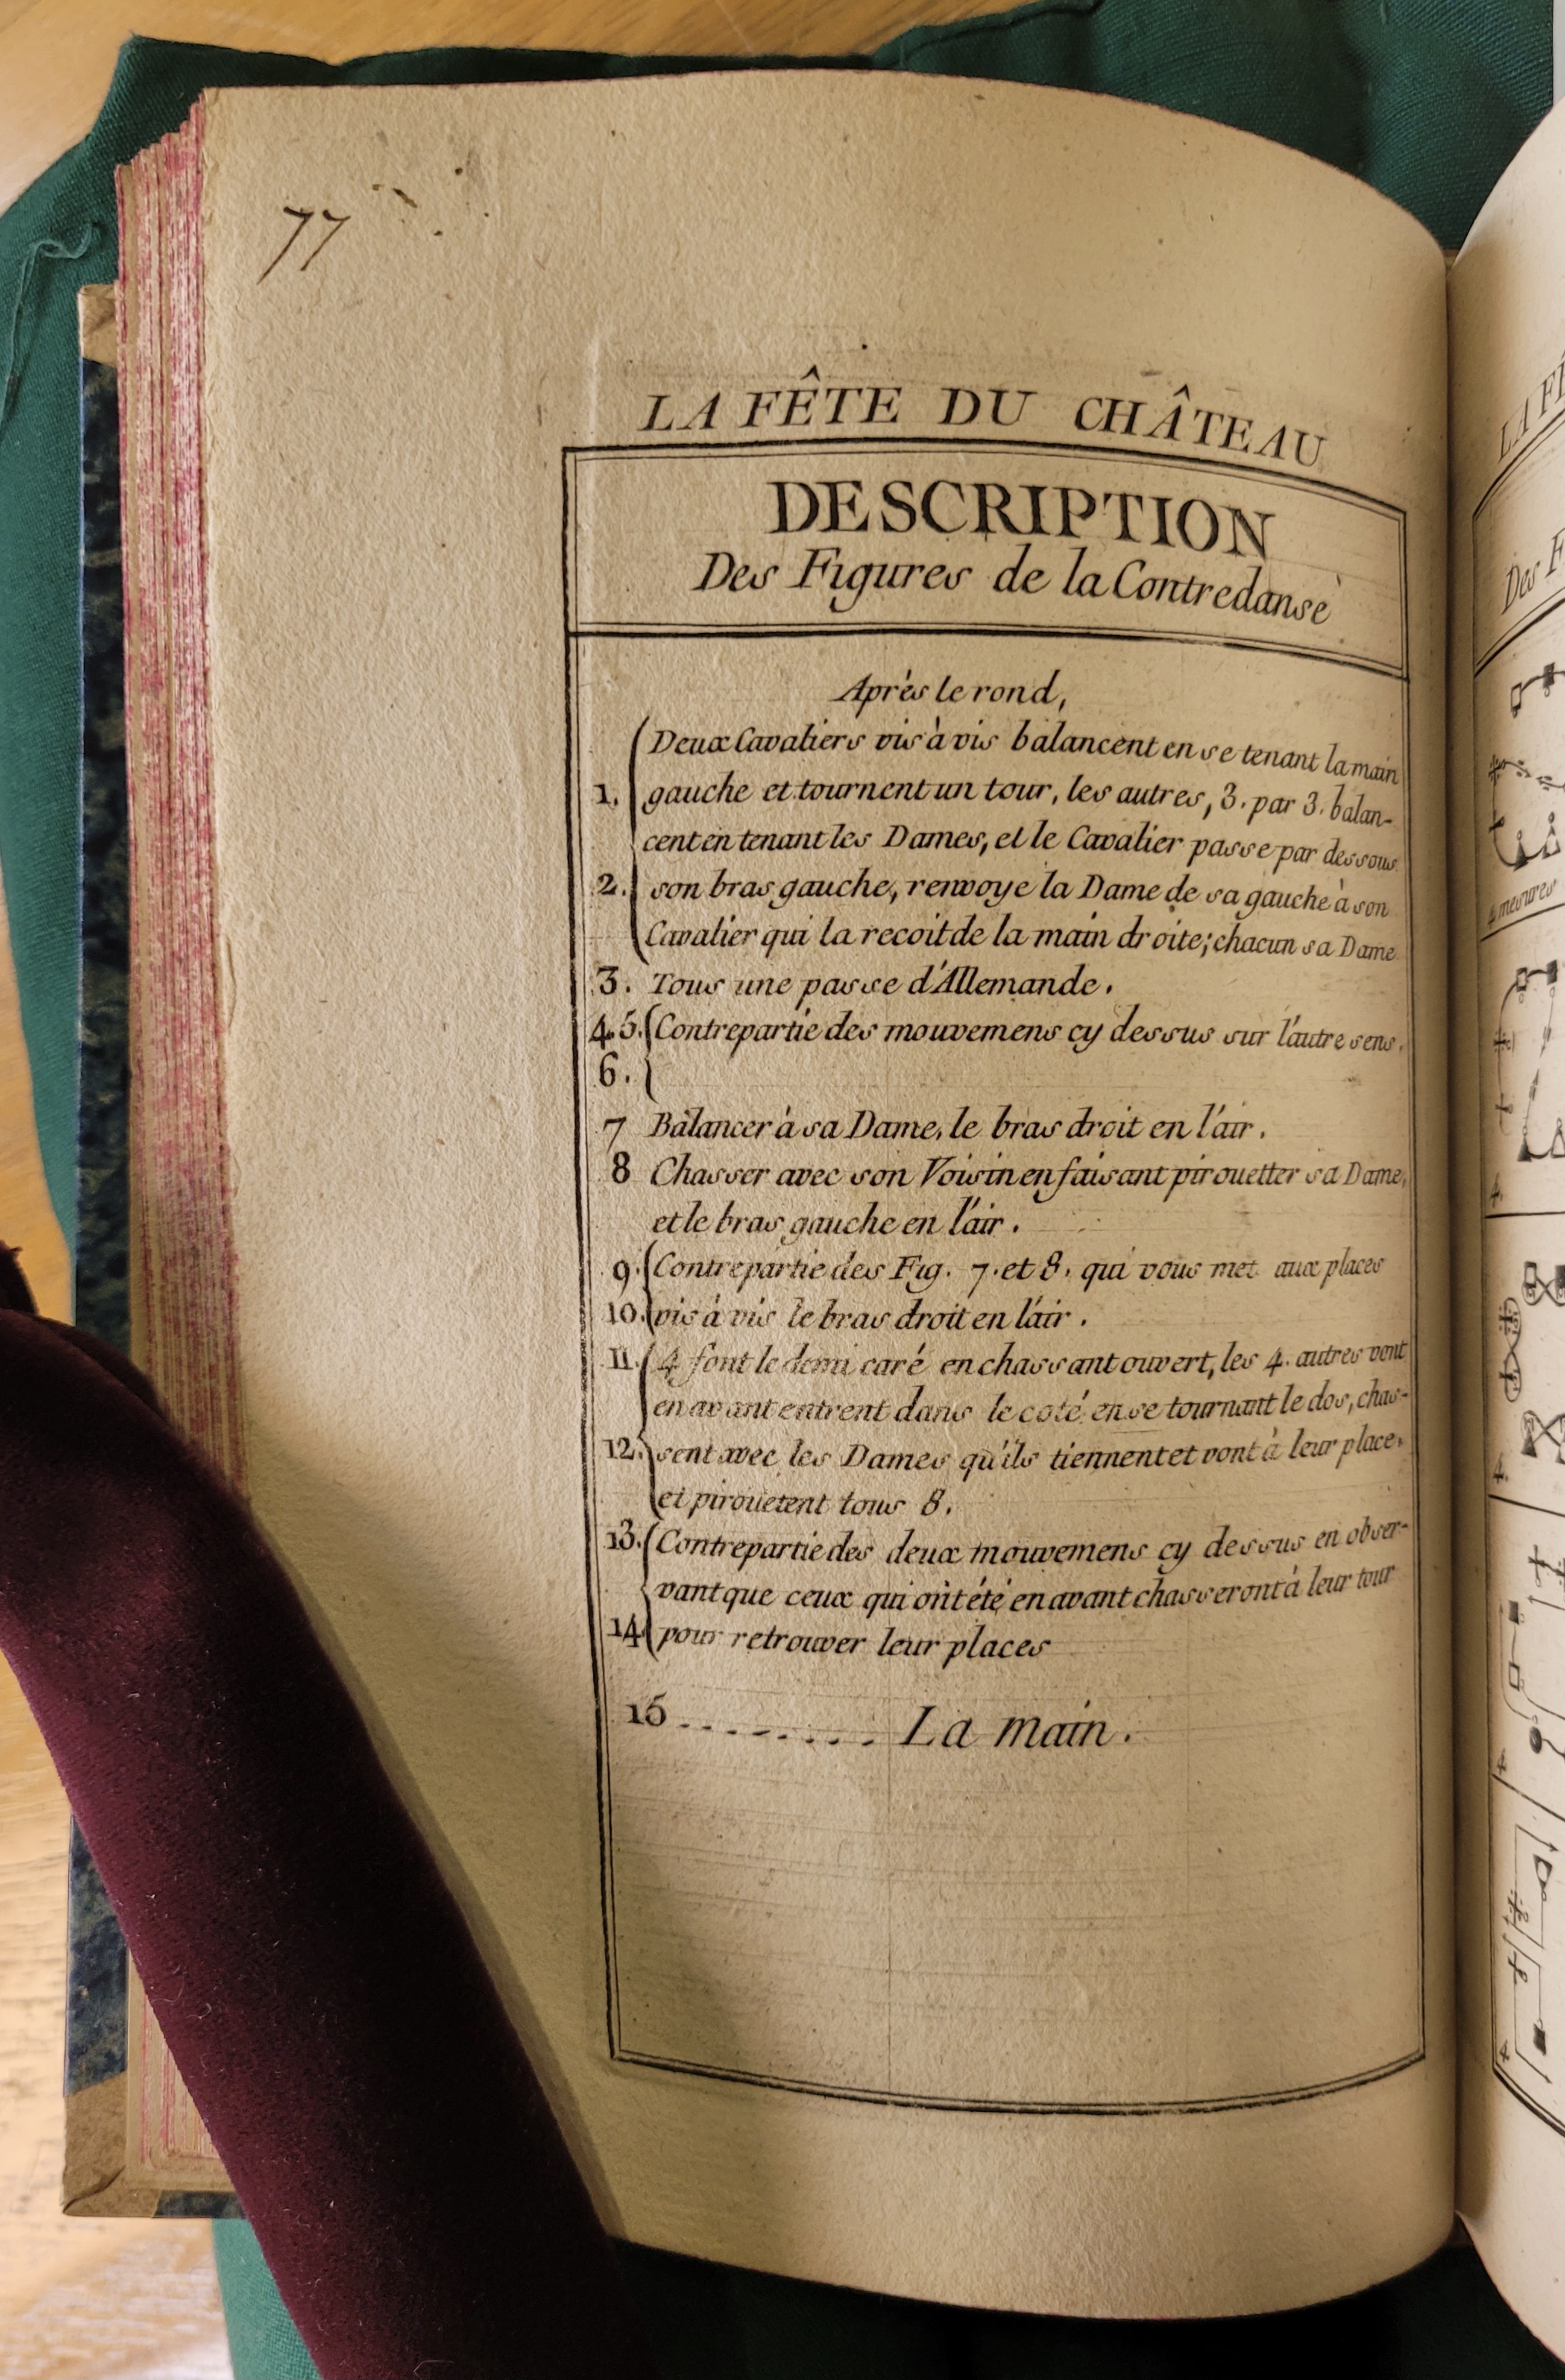 77
LA FÊTE DU CHÂTEAU
DESCRIPTION
Des Figures de la Contredanse
Après le rond,
Deux Cavaliers vis à vis balancent en se tenant la main
1. gauche et tournent un tour, les autres, 3. par 3. balan-
cent en tenant les Dames, et le Cavalier passe par dessous
2. son bras gauche, renvoye la Dame de sa gauche à son
Cavalier qui la recoit de la main droite; chacun sa Dame
3. Tous une passe d'Allemande.
4. 5. Contrepartie des mouvemens cy dessus sur l'autre sens.
6.
7 Balancer à sa Dame, le bras droit en l'air.
8 Chasser avec son Voisin en faisant pirouetter sa Dame,
et le bras gauche en l'air.
9. Contrepartie des Fig. 7. et 8. qui vous met aux places
10. vis à vis le bras droit en l'air.
11. 4 font le demi caré en chassant ouvert, les 4. autres vont
en avant entrent dans le coté en se tournant le dos, chas-
12. sent avec les Dames qu'ils tiennent et vont à leur place,
et pirouetent tous 8.
13. Contrepartie des deux mouvemens cy dessus en obser-
vant que ceux qui ont été en avant chasseront à leur tour
14. pour retrouver leur places
15 ......... La main.
LA FÊ
Des F
4 mesures